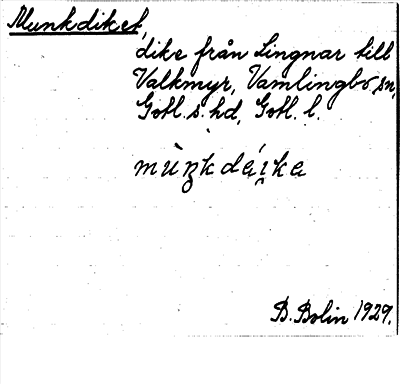 Munkdiket,
dike från Lingnar till
Valkmyr, Vamlingbo sn,
Gotl. s. hd, Gotl. l.
mùŋkdáı̯ka
B. Bolin 1929.